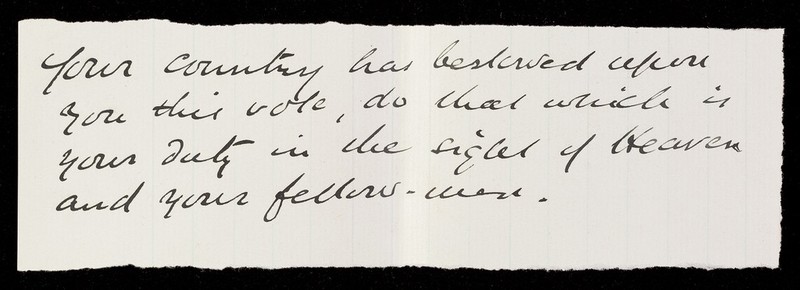 Your country has bestowed upon
you this vote, do that which is
your duty in the sight of Heaven
and your fellow-men.